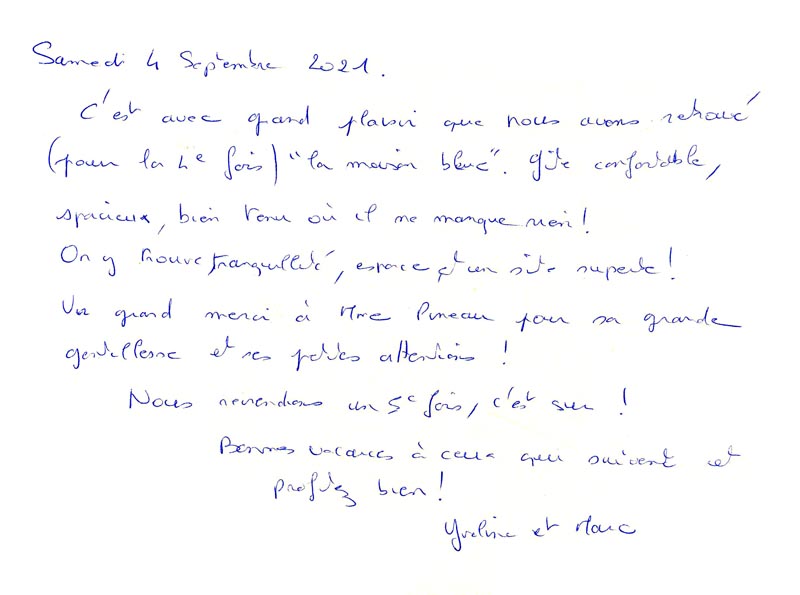 Samedi 4 Septembre 2021.
C'est avec grand plaisir que nous avons retrouvé
(pour la 4e fois) "la maison bleue". Gîte confortable,
spacieux, bien tenu où il ne manque rien !
On y trouve tranquillité, espace et un site superbe !
Un grand merci à Mme Pineau pour sa grande
gentillesse et ses petites attentions !
Nous reviendrons un 5e fois, c'est sur !
Bonnes vacances à ceux qui suivent et
profitez bien !
Yveline et Marc